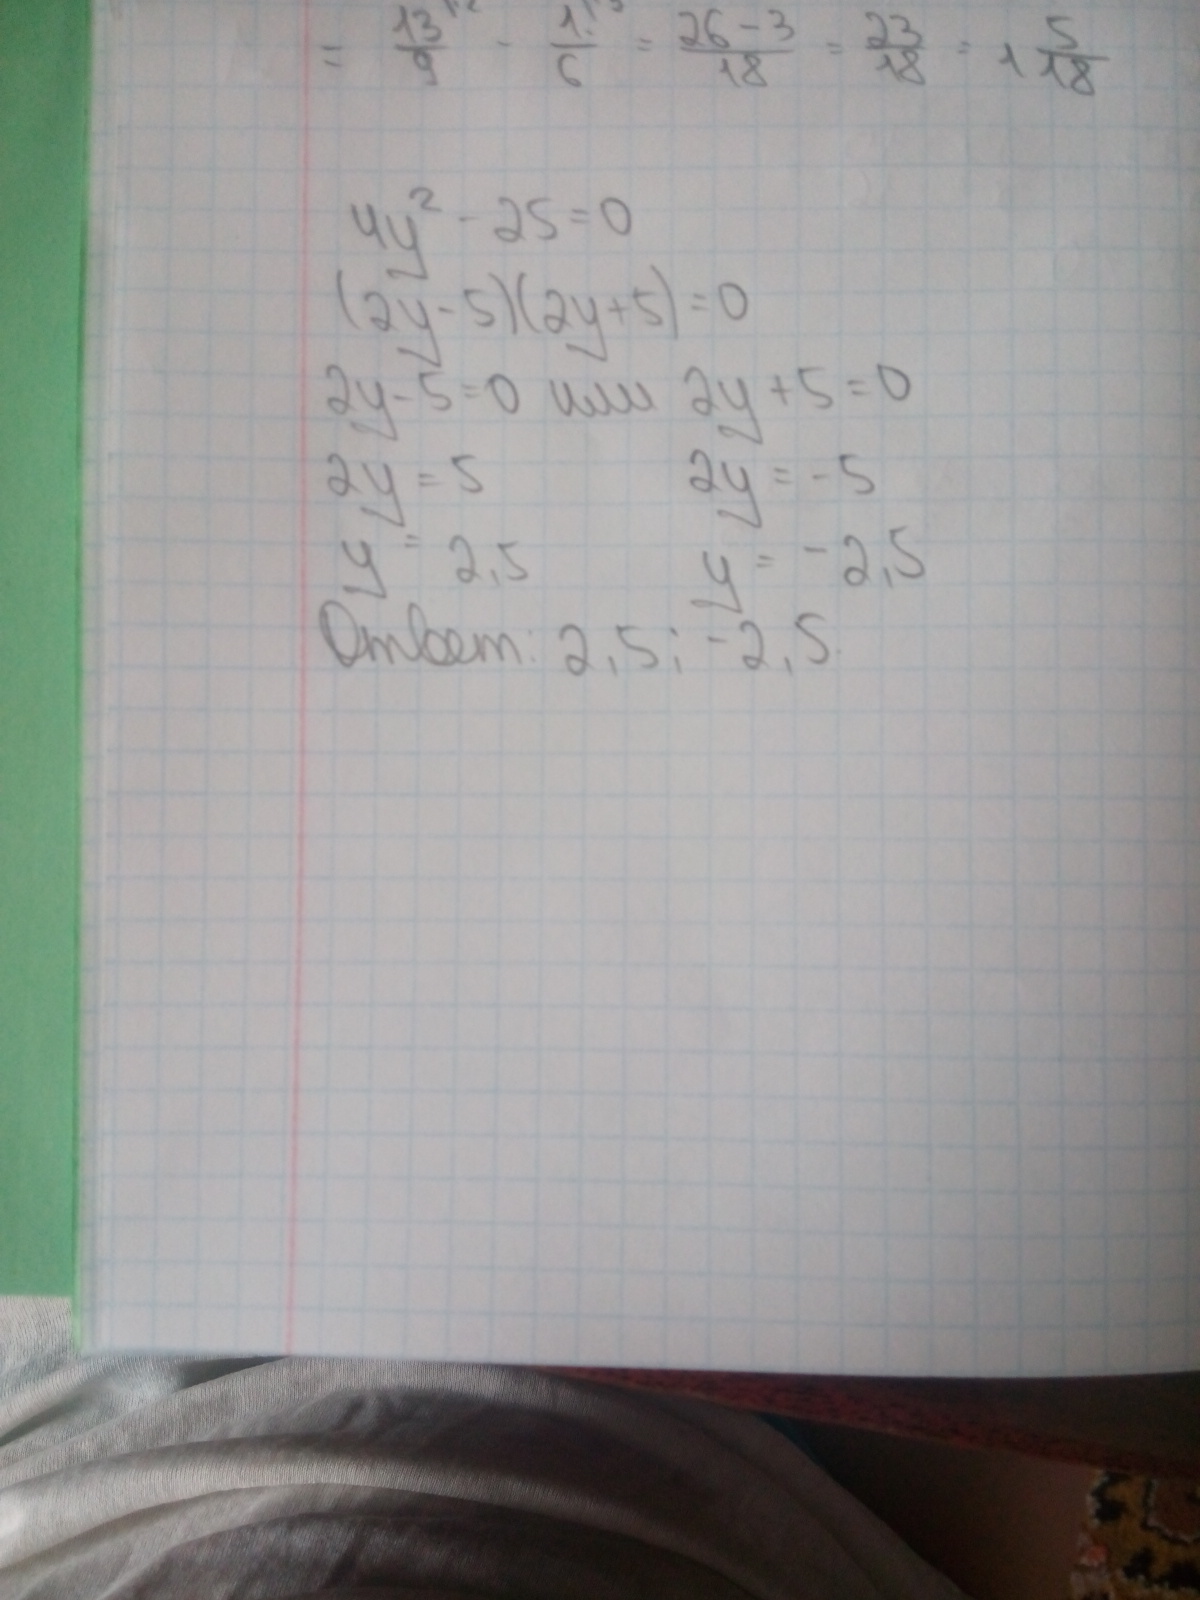 = 13/9 - 1/6 = 26-3/18 = 23/18 = 1 5/18
4y² - 25 = 0
(2y-5)(2y+5) = 0
2y-5=0 или 2y+5=0
2y = 5 2y = -5
y = 2,5 y = -2,5
Ответ: 2,5; -2,5.